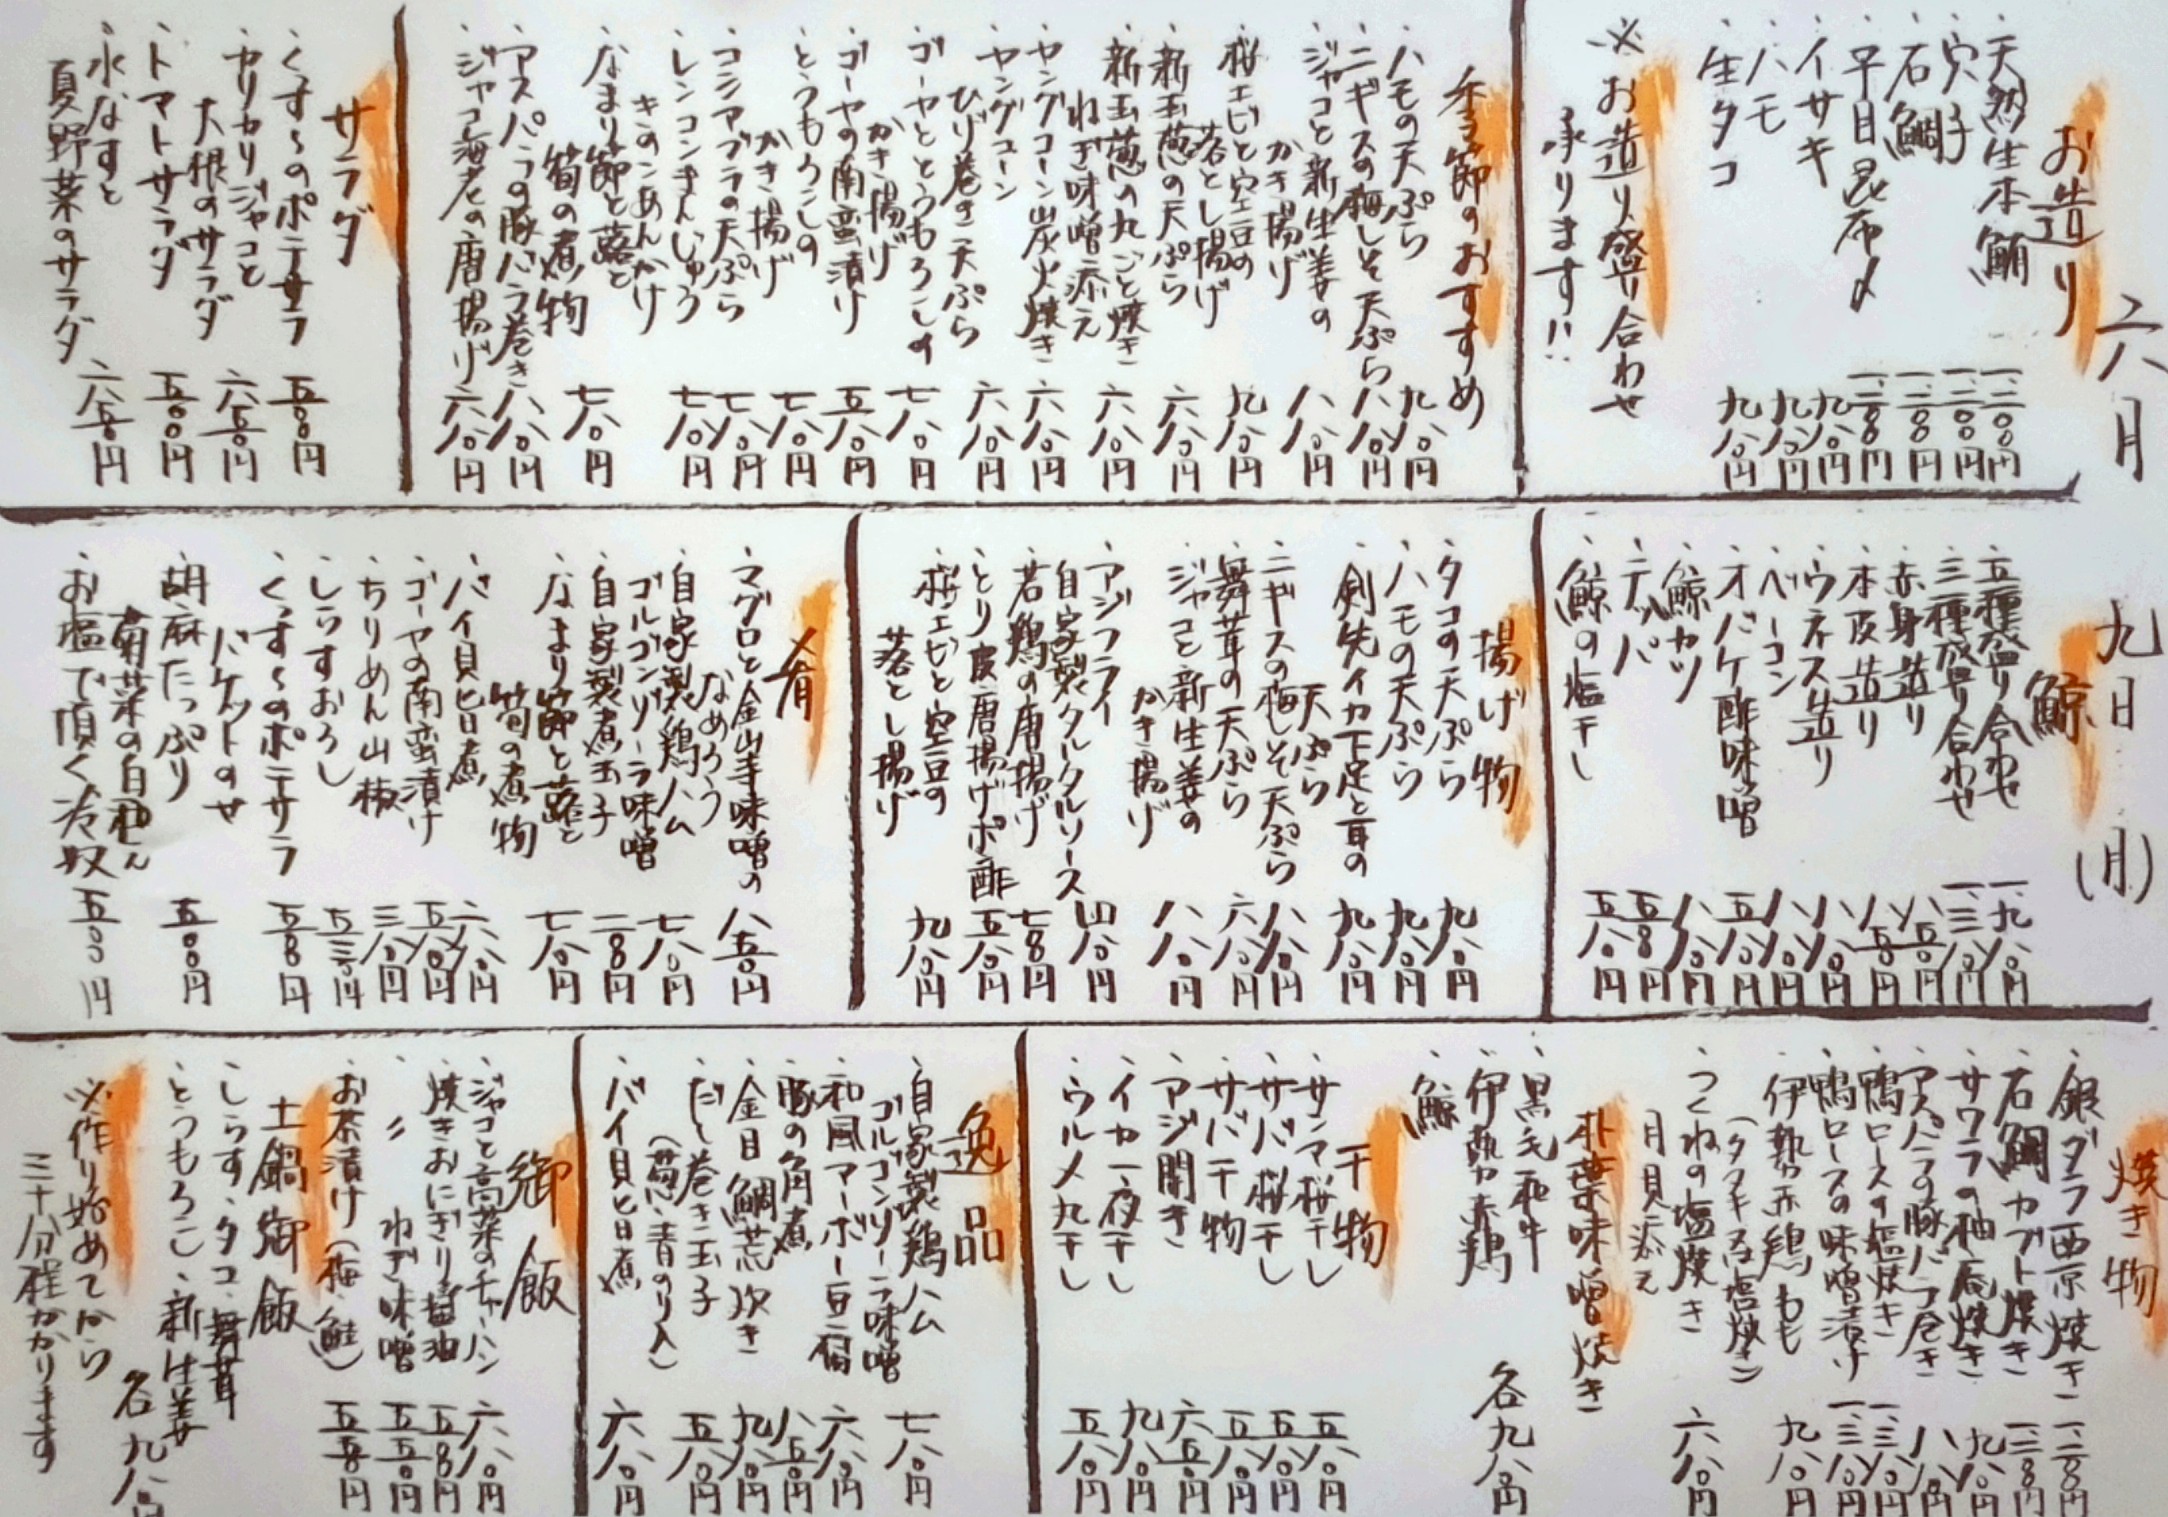 六月九日(月)
お造り
、天然生本鮪 一、二〇〇円
、穴子 一、二〇〇円
、石鯛 一、二〇〇円
、平目昆布〆 一、二〇〇円
、イサキ 九八〇円
、ハモ 九八〇円
、生タコ 九八〇円
※お造り盛り合わせ
承ります!!
季節のおすすめ
、ハモの天ぷら 九八〇円
、ニギスの梅しそ天ぷら 八八〇円
、ジャコと新生姜の
かき揚げ 八八〇円
、桜エビと空豆の
落とし揚げ 九八〇円
、新玉葱の天ぷら 六八〇円
、新玉葱の丸ごと焼き
ねぎ味噌添え 六八〇円
、ヤングコーン炭火焼き 六八〇円
、ヤングコーン
ひげ巻き天ぷら 六八〇円
、ゴーヤととうもろこしの
かき揚げ 七八〇円
、ゴーヤの南蛮漬け 五八〇円
、とうもろこしの
かき揚げ 七八〇円
、コシアブラの天ぷら 七八〇円
、レンコンまんじゅう
きのこあんかけ 七八〇円
、なまり節と蕗と
筍の煮物 七八〇円
、アスパラの豚バラ巻き 八八〇円
、ジャコ海老の唐揚げ 六八〇円
サラダ
、くすくすのポテサラ 五〇〇円
、カリカリジャコと
大根のサラダ 六五〇円
、トマトサラダ 五〇〇円
、水なすと
夏野菜のサラダ 六五〇円
鯨
、五種盛り合わせ 一、九八〇円
、三種盛り合わせ 一、三八〇円
、赤身造り 八五〇円
、本皮造り 八五〇円
、ウネス造り 八八〇円
、ベーコン 八八〇円
、オバケ酢味噌 五八〇円
、鯨カツ 八八〇円
、テッパ 五五〇円
、鯨の塩干し 五八〇円
揚げ物
、タコの天ぷら 九八〇円
、ハモの天ぷら 九八〇円
、剣先イカ下足と耳の
天ぷら 九八〇円
、ニギスの梅しそ天ぷら 八八〇円
、舞茸の天ぷら 六八〇円
、ジャコと新生姜の
かき揚げ 八八〇円
、アジフライ
自家製タルタルソース 四八〇円
、若鶏の唐揚げ 七五〇円
、とり皮唐揚げポン酢 五八〇円
、桜エビと空豆の
落とし揚げ 九八〇円
肴
、マグロと金山寺味噌の
なめろう 八五〇円
、自家製鶏ハム
ゴルゴンゾーラ味噌 七八〇円
、自家製煮玉子 二〇〇円
、なまり節と蕗と
筍の煮物 七八〇円
、バイ貝旨煮 六八〇円
、ゴーヤの南蛮漬け 五八〇円
、ちりめん山椒 三八〇円
、しらすおろし 五三〇円
、くすくすのポテサラ
バケットのせ 五五〇円
、胡麻たっぷり
菊菜の白和え 五〇〇円
、お塩で頂く冷奴 五〇〇円
焼き物
、銀ダラ西京焼き 一、二〇〇円
、石鯛カブト焼き 一、二〇〇円
、サワラの柚庵焼き 九八〇円
、アスパラの豚バラ巻き 八八〇円
、鴨ロースの塩焼き 一、三八〇円
、鴨ロースの味噌漬け 一、三八〇円
、伊勢赤鶏もも
(タタキ又は塩焼き) 九八〇円
、つくねの塩焼き
月見添え 六八〇円
朴葉味噌焼き
、黒毛和牛
、伊勢赤鶏
、鯨 各九八〇円
干物
、サンマ桜干し 五八〇円
、サバ桜干し 五八〇円
、サバ干物 五八〇円
、アジ開き 六五〇円
、イカ一夜干し 九八〇円
、ウルメ丸干し 五八〇円
逸品
、自家製鶏ハム
ゴルゴンゾーラ味噌 七八〇円
、和風マーボー豆腐 六八〇円
、豚の角煮 八五〇円
、金目鯛荒炊き 九八〇円
、だし巻き玉子
(葱・青のり入) 五八〇円
、バイ貝旨煮 六八〇円
御飯
、ジャコと高菜のチャーハン 六八〇円
、焼きおにぎり醤油 五五〇円
、〃 ねぎ味噌 五五〇円
、お茶漬け(梅・鮭) 五五〇円
土鍋御飯
、しらす、タコ、舞茸
、とうもろこし、新生姜
各九八〇円
※作り始めてから
三十分程かかります